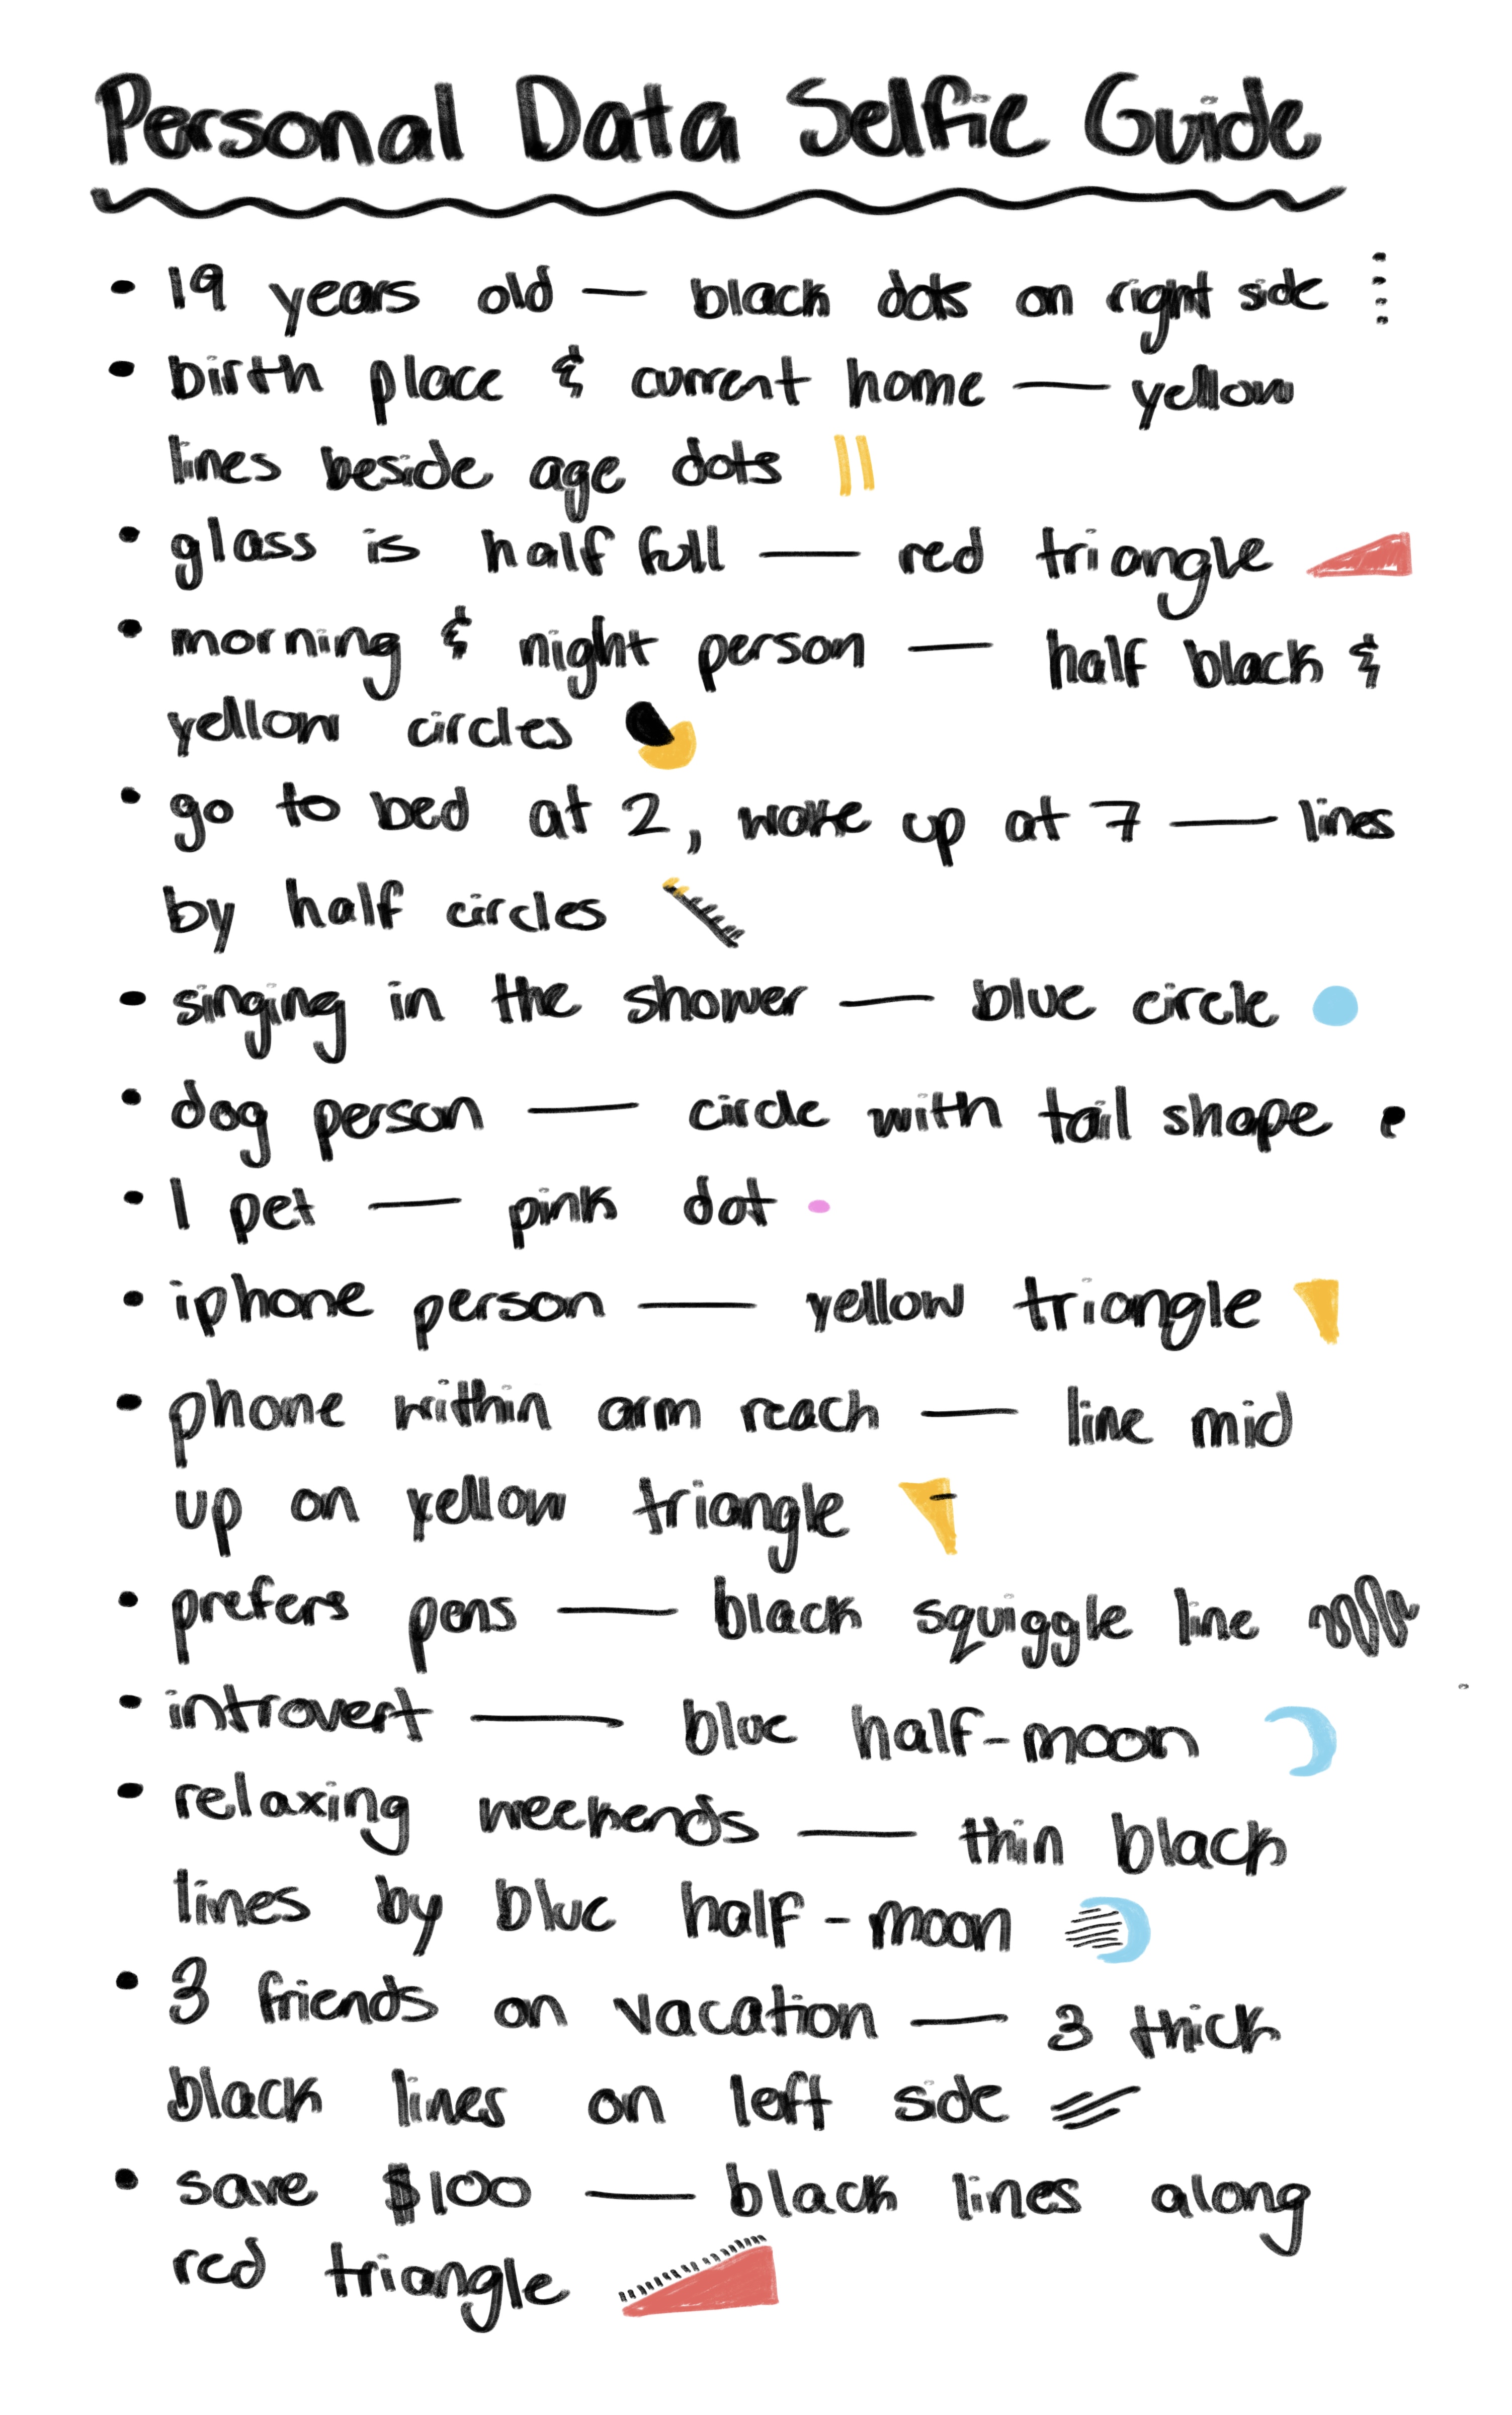 Personal Data Selfie Guide
• 19 years old — black dots on right side
• birth place & current home — yellow
lines beside age dots
• glass is half full — red triangle
• morning & night person — half black &
yellow circles
• go to bed at 2, wake up at 7 — lines
by half circles
• singing in the shower — blue circle
• dog person — circle with tail shape
• 1 pet — pink dot
• iphone person — yellow triangle
• phone within arm reach — line mid
up on yellow triangle
• prefers pens — black squiggle line
• introvert — blue half-moon
• relaxing weekends — thin black
lines by blue half-moon
• 3 friends on vacation — 3 thick
black lines on left side
• save $100 — black lines along
red triangle